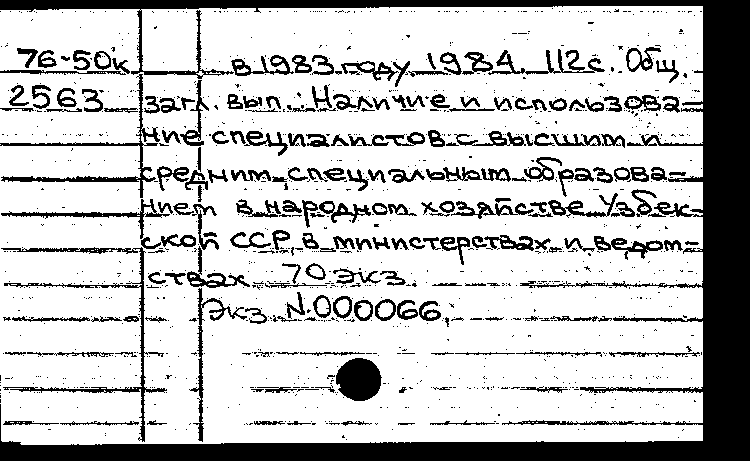 76-50к в 1983 году. 1984. 112с. Общ.
2563 загл. вып.: Наличие и использова-
ние специалистов с высшим и
средним специальным образова-
нием в народном хозяйстве Узбек-
ской ССР в министерствах и ведом-
ствах 70 экз.
Экз N.000066.